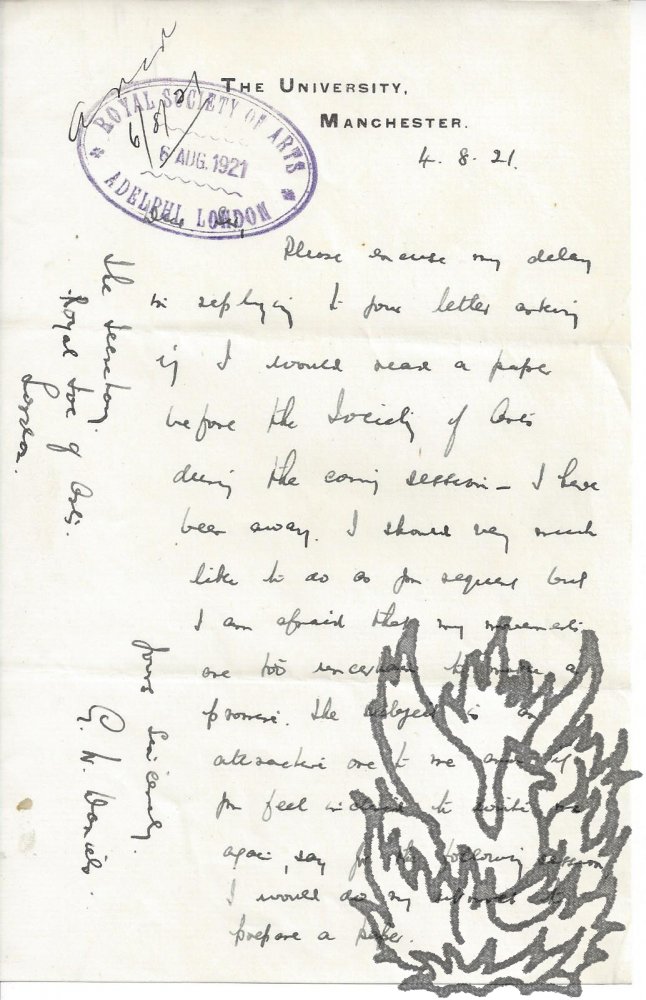 THE UNIVERSITY,
MANCHESTER.
4. 8. 21.
ROYAL SOCIETY OF ARTS
6 AUG. 1921
ADELPHI, LONDON
6/8/21
Dear Sir,
Please excuse my delay
in replying to your letter asking
if I would read a paper
before the Society of Arts
during the coming session – I have
been away. I should very much
like to do as you request but
I am afraid that my movements
are too uncertain to make a
promise. The subject is an
attractive one to me and if
you feel inclined to write me
again, say for the following session
I would do my utmost to
prepare a paper.
Yours sincerely.
G. W. Daniels.
The Secretary.
Royal Soc of Arts.
London.